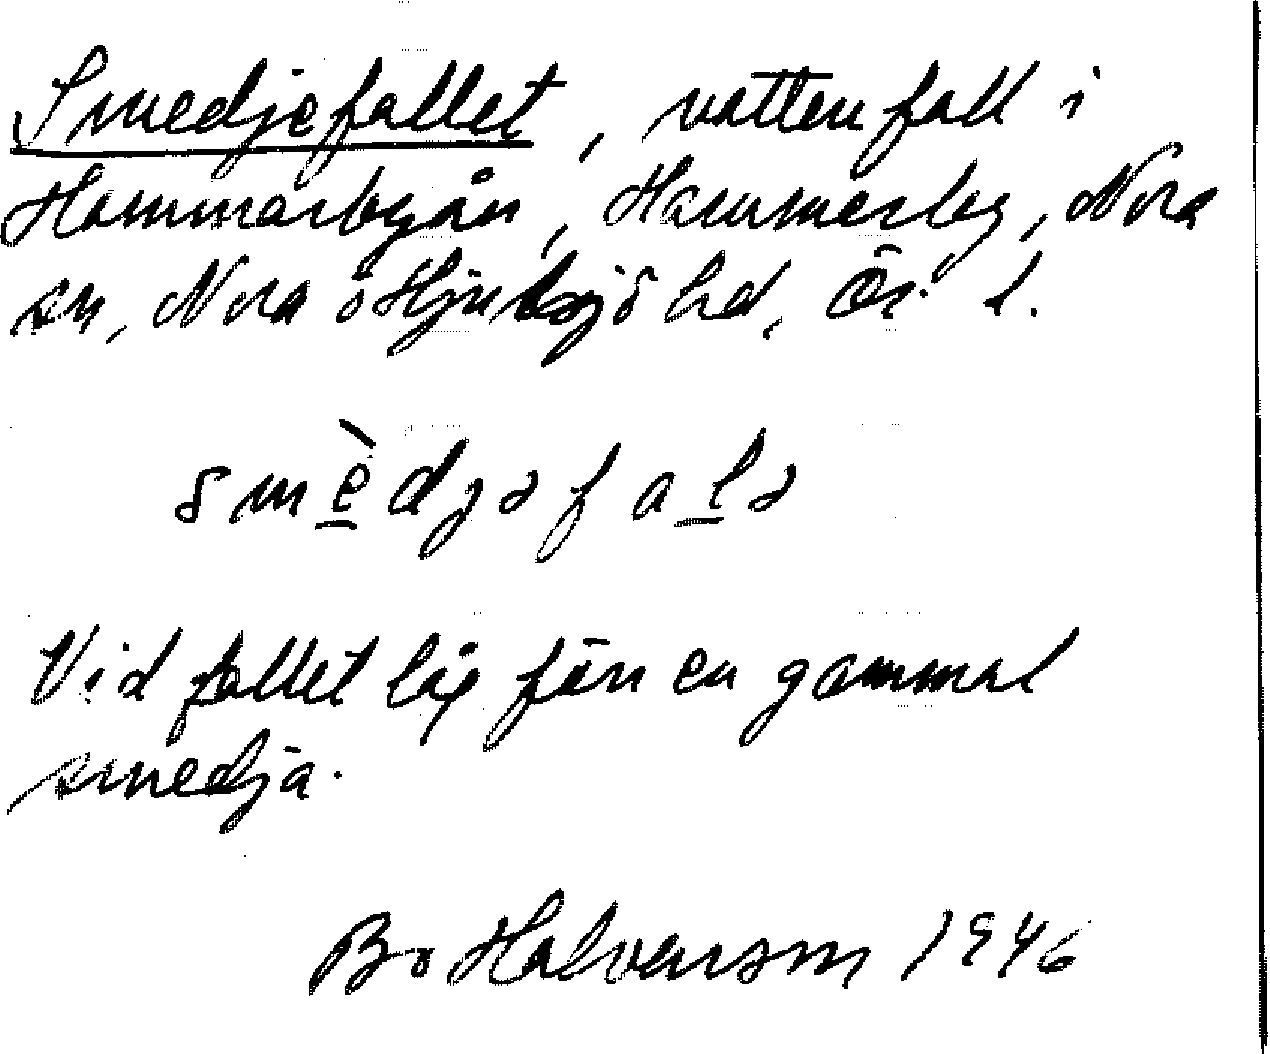 Smedjefallet, vattenfall i
Hammarbyån, Hammarby, Nora
sn, Nora o Hjulsjö hd, Ör. l.
smèdjəfalə
Vid fallet låg förr en gammal
smedja.
Bo Halvarson 1946